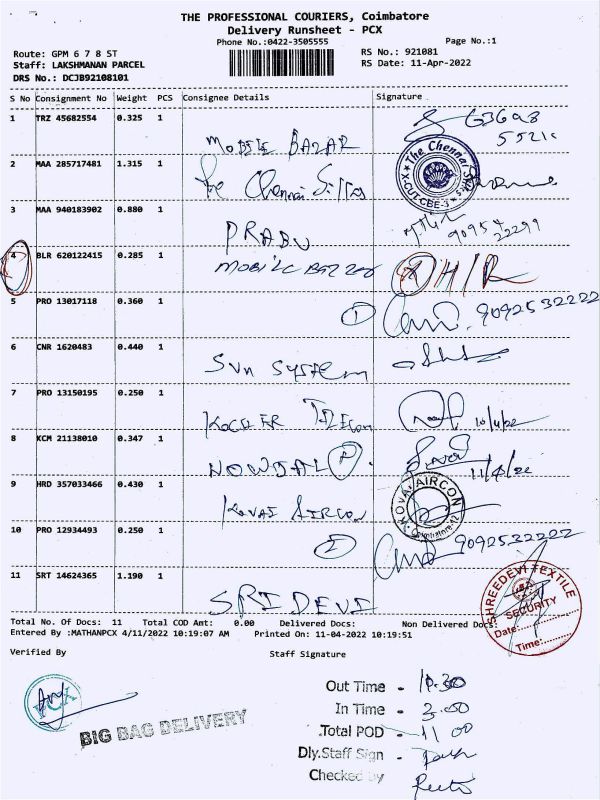 THE PROFESSIONAL COURIERS, Coimbatore
Delivery Runsheet - PCX
Phone No.:0422-3505555
Page No.:1
Route: GPM 6 7 8 ST
RS No.: 921081
Staff: LAKSHMANAN PARCEL
RS Date: 11-Apr-2022
DRS No.: DCJB92108101
S No Consignment No Weight PCS Consignee Details Signature
1 TRZ 45682554 0.325 1 MOBILE BAZAR
2 MAA 285717481 1.315 1 The Chennai Silks
The Chennai Silks
X-CUT.CBE-3
3 MAA 940183902 0.880 1 PRABU 90954 22299
4 BLR 620122415 0.285 1 MOBILE BAZZAR H/R
5 PRO 13017118 0.360 1 1 9092532222
6 CNR 1620483 0.440 1 Sun System
7 PRO 13150195 0.250 1 Telecom 10/4/22
8 KCM 21138010 0.347 1 11/4/22
9 HRD 357033466 0.430 1 KOVAI AIRCON
KOVAI AIRCON
Coimbatore-12
10 PRO 12934493 0.250 1 2 9092532222
11 SRT 14624365 1.190 1 SRI DEVI
SHREEDEVI TEXTILE
SECURITY
Date:
Time:
Total No. Of Docs: 11 Total COD Amt: 0.00 Delivered Docs: Non Delivered Docs:
Entered By :MATHANPCX 4/11/2022 10:19:07 AM Printed On: 11-04-2022 10:19:51
Verified By Staff Signature
BIG BAG DELIVERY
Out Time - 10.30
In Time - 3.00
Total POD - 11 00
Dly.Staff Sign -
Checked by